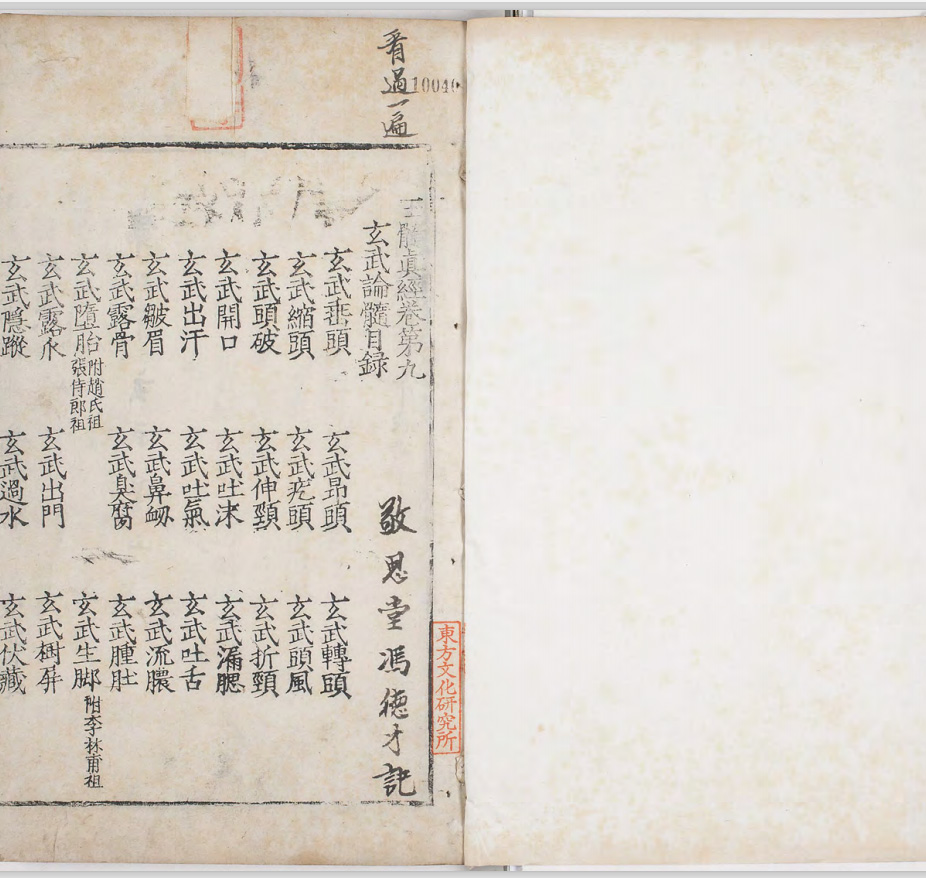 看過一遍
10040
髓眞經卷第九
玄武論髓目録
敬思堂馮德才記
東方文化研究所
玄武垂頭 玄武昂頭 玄武轉頭
玄武縮頭 玄武 頭 玄武頭風
玄武頭破 玄武伸頸 玄武折頸
玄武開口 玄武吐沫 玄武漏腮
玄武出汗 玄武吐氣 玄武吐舌
玄武皺眉 玄武鼻衂 玄武流膿
玄武露骨 玄武臭腐 玄武腫肚
玄武墮胎 附趙氏祖 張侍郎祖 玄武生脚 附李林甫祖
玄武露 玄武出門 玄武樹屏
玄武隱蹤 玄武過水 玄武伏藏